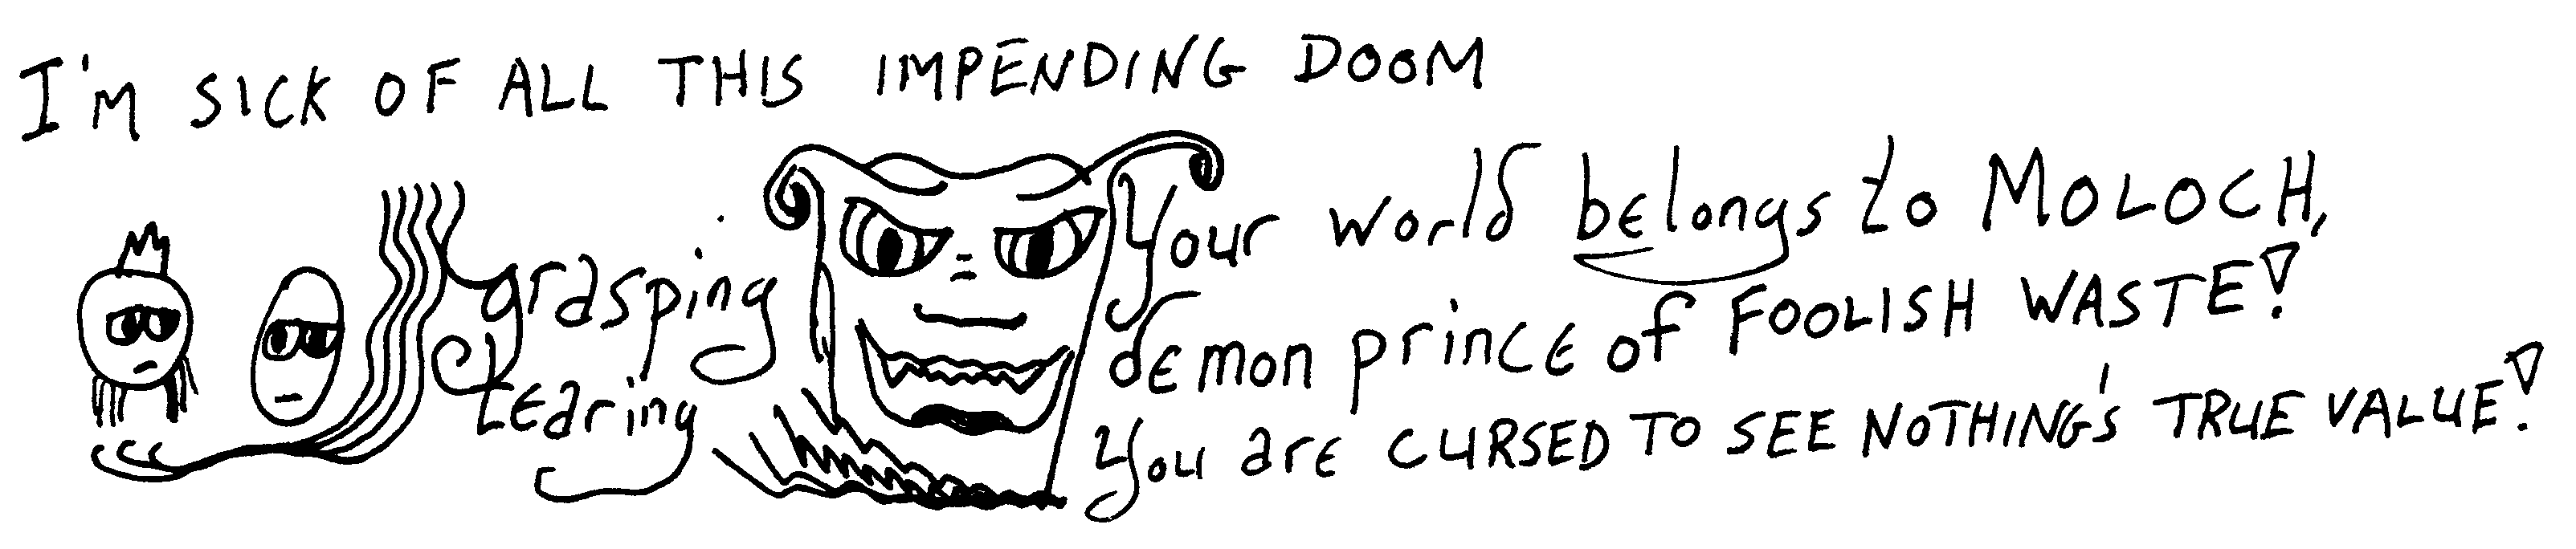 I'M SICK OF ALL THIS IMPENDING DOOM
grasping
tearing
Your world belongs to MOLOCH,
demon prince of FOOLISH WASTE!
You are CURSED TO SEE NOTHING'S TRUE VALUE!